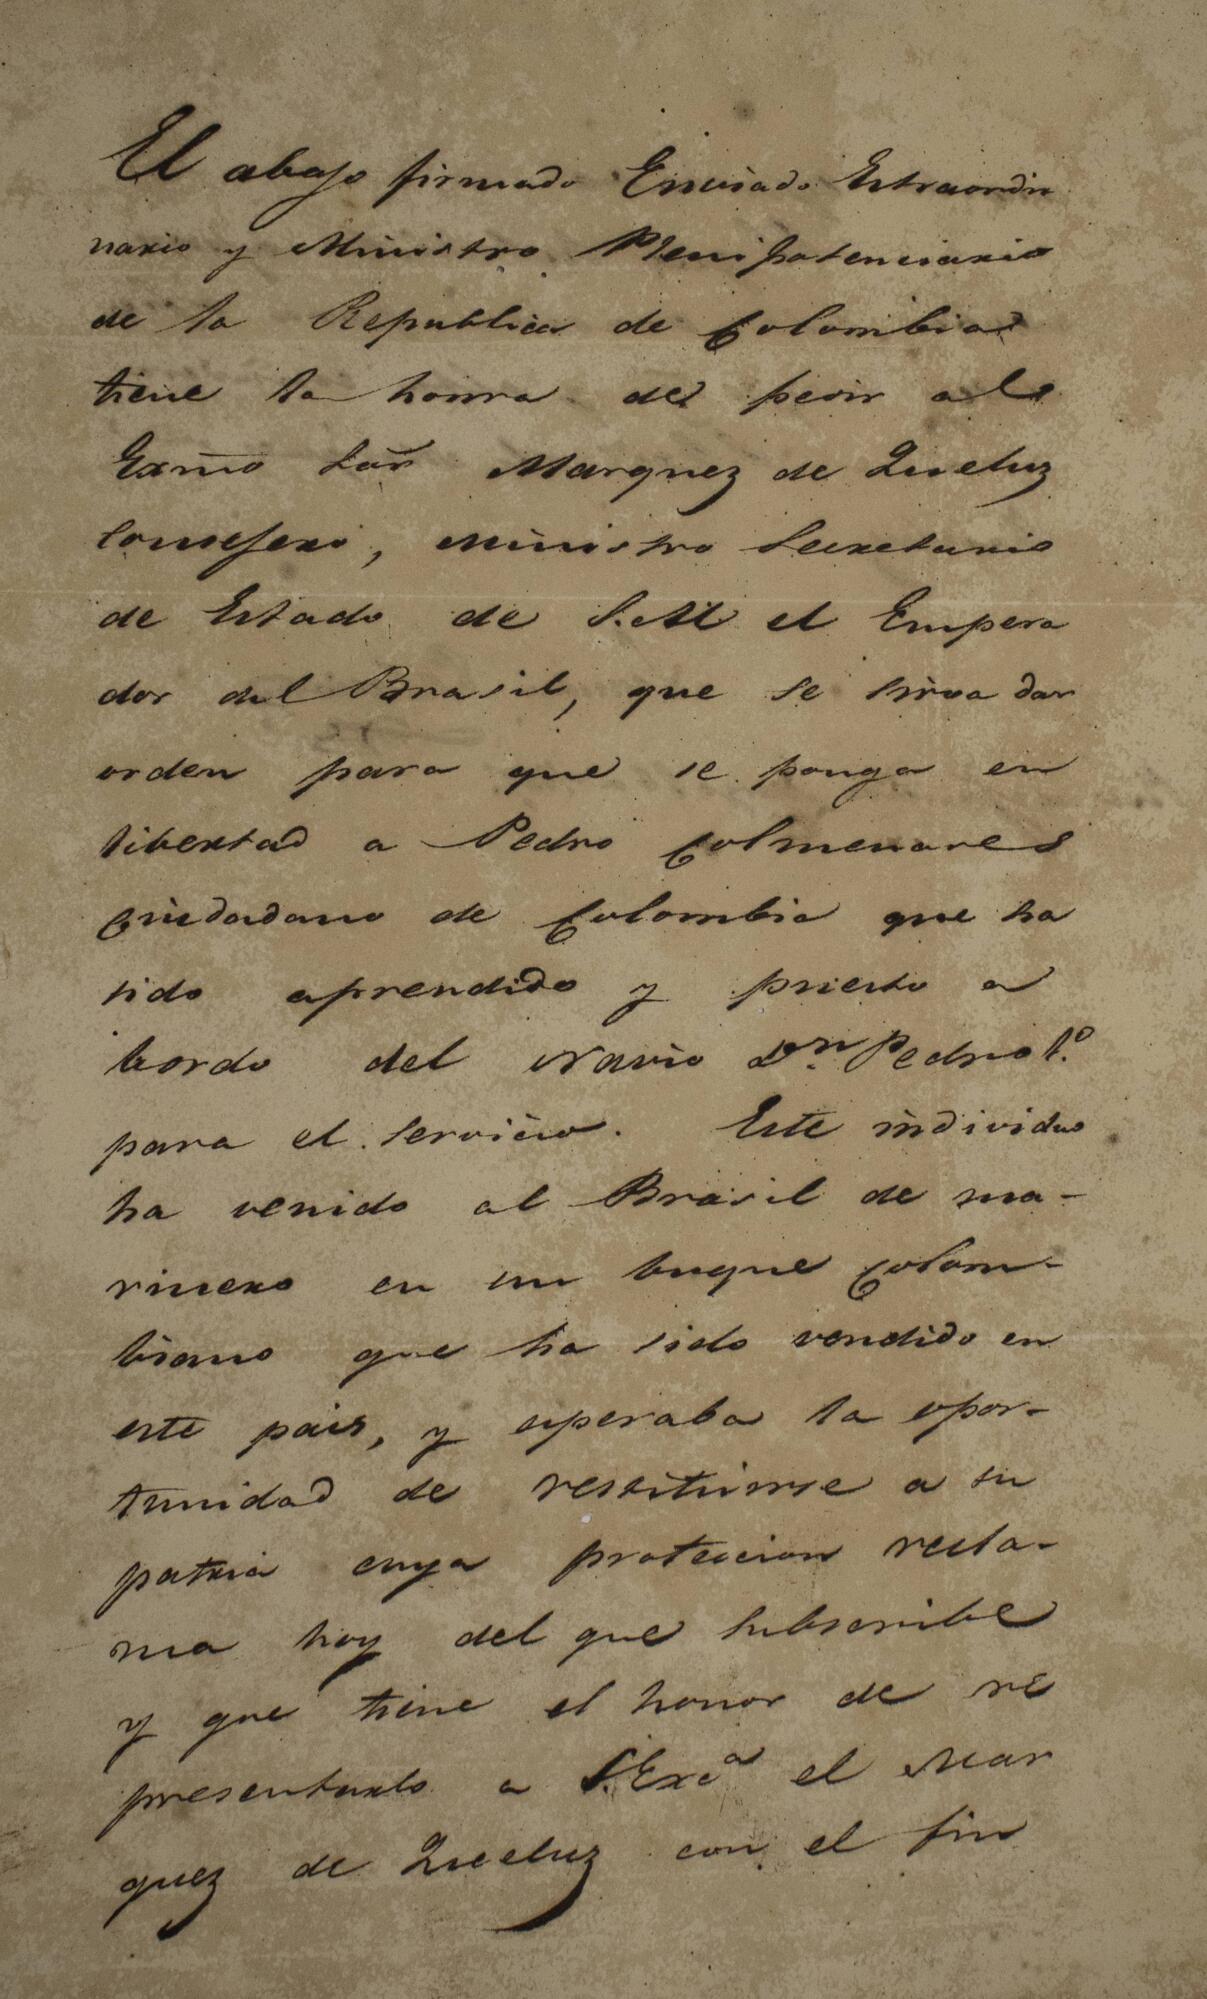 El abajo firmado Enviado Estraordi
nario y Ministro Plenipotenciario
de la Republica de Colombia
tiene la honra de pedir ale
Exm̃o Sor̃ Marquez de Queluz
Consejero, Ministro Secretario
de Estado de S.M el Empera
dor del Brasil, que se sirva dar
orden para que se ponga en
libertad a Pedro Colmenares
Ciudadano de Colombia que ha
sido aprendido y puesto a
bordo del Navio Dn. Pedro 1.º
para el servicio. Este individuo
ha venido al Brasil de ma-
rinero en un buque Colom-
biano que ha sido vendido en
este pais, y esperaba la opor-
tunidad de restituirse a su
patria cuya proteccion recla-
ma hoy del que subscribe
y que tiene el honor de re
presentarlo a S.Exca el Mar
quez de Queluz con el fin